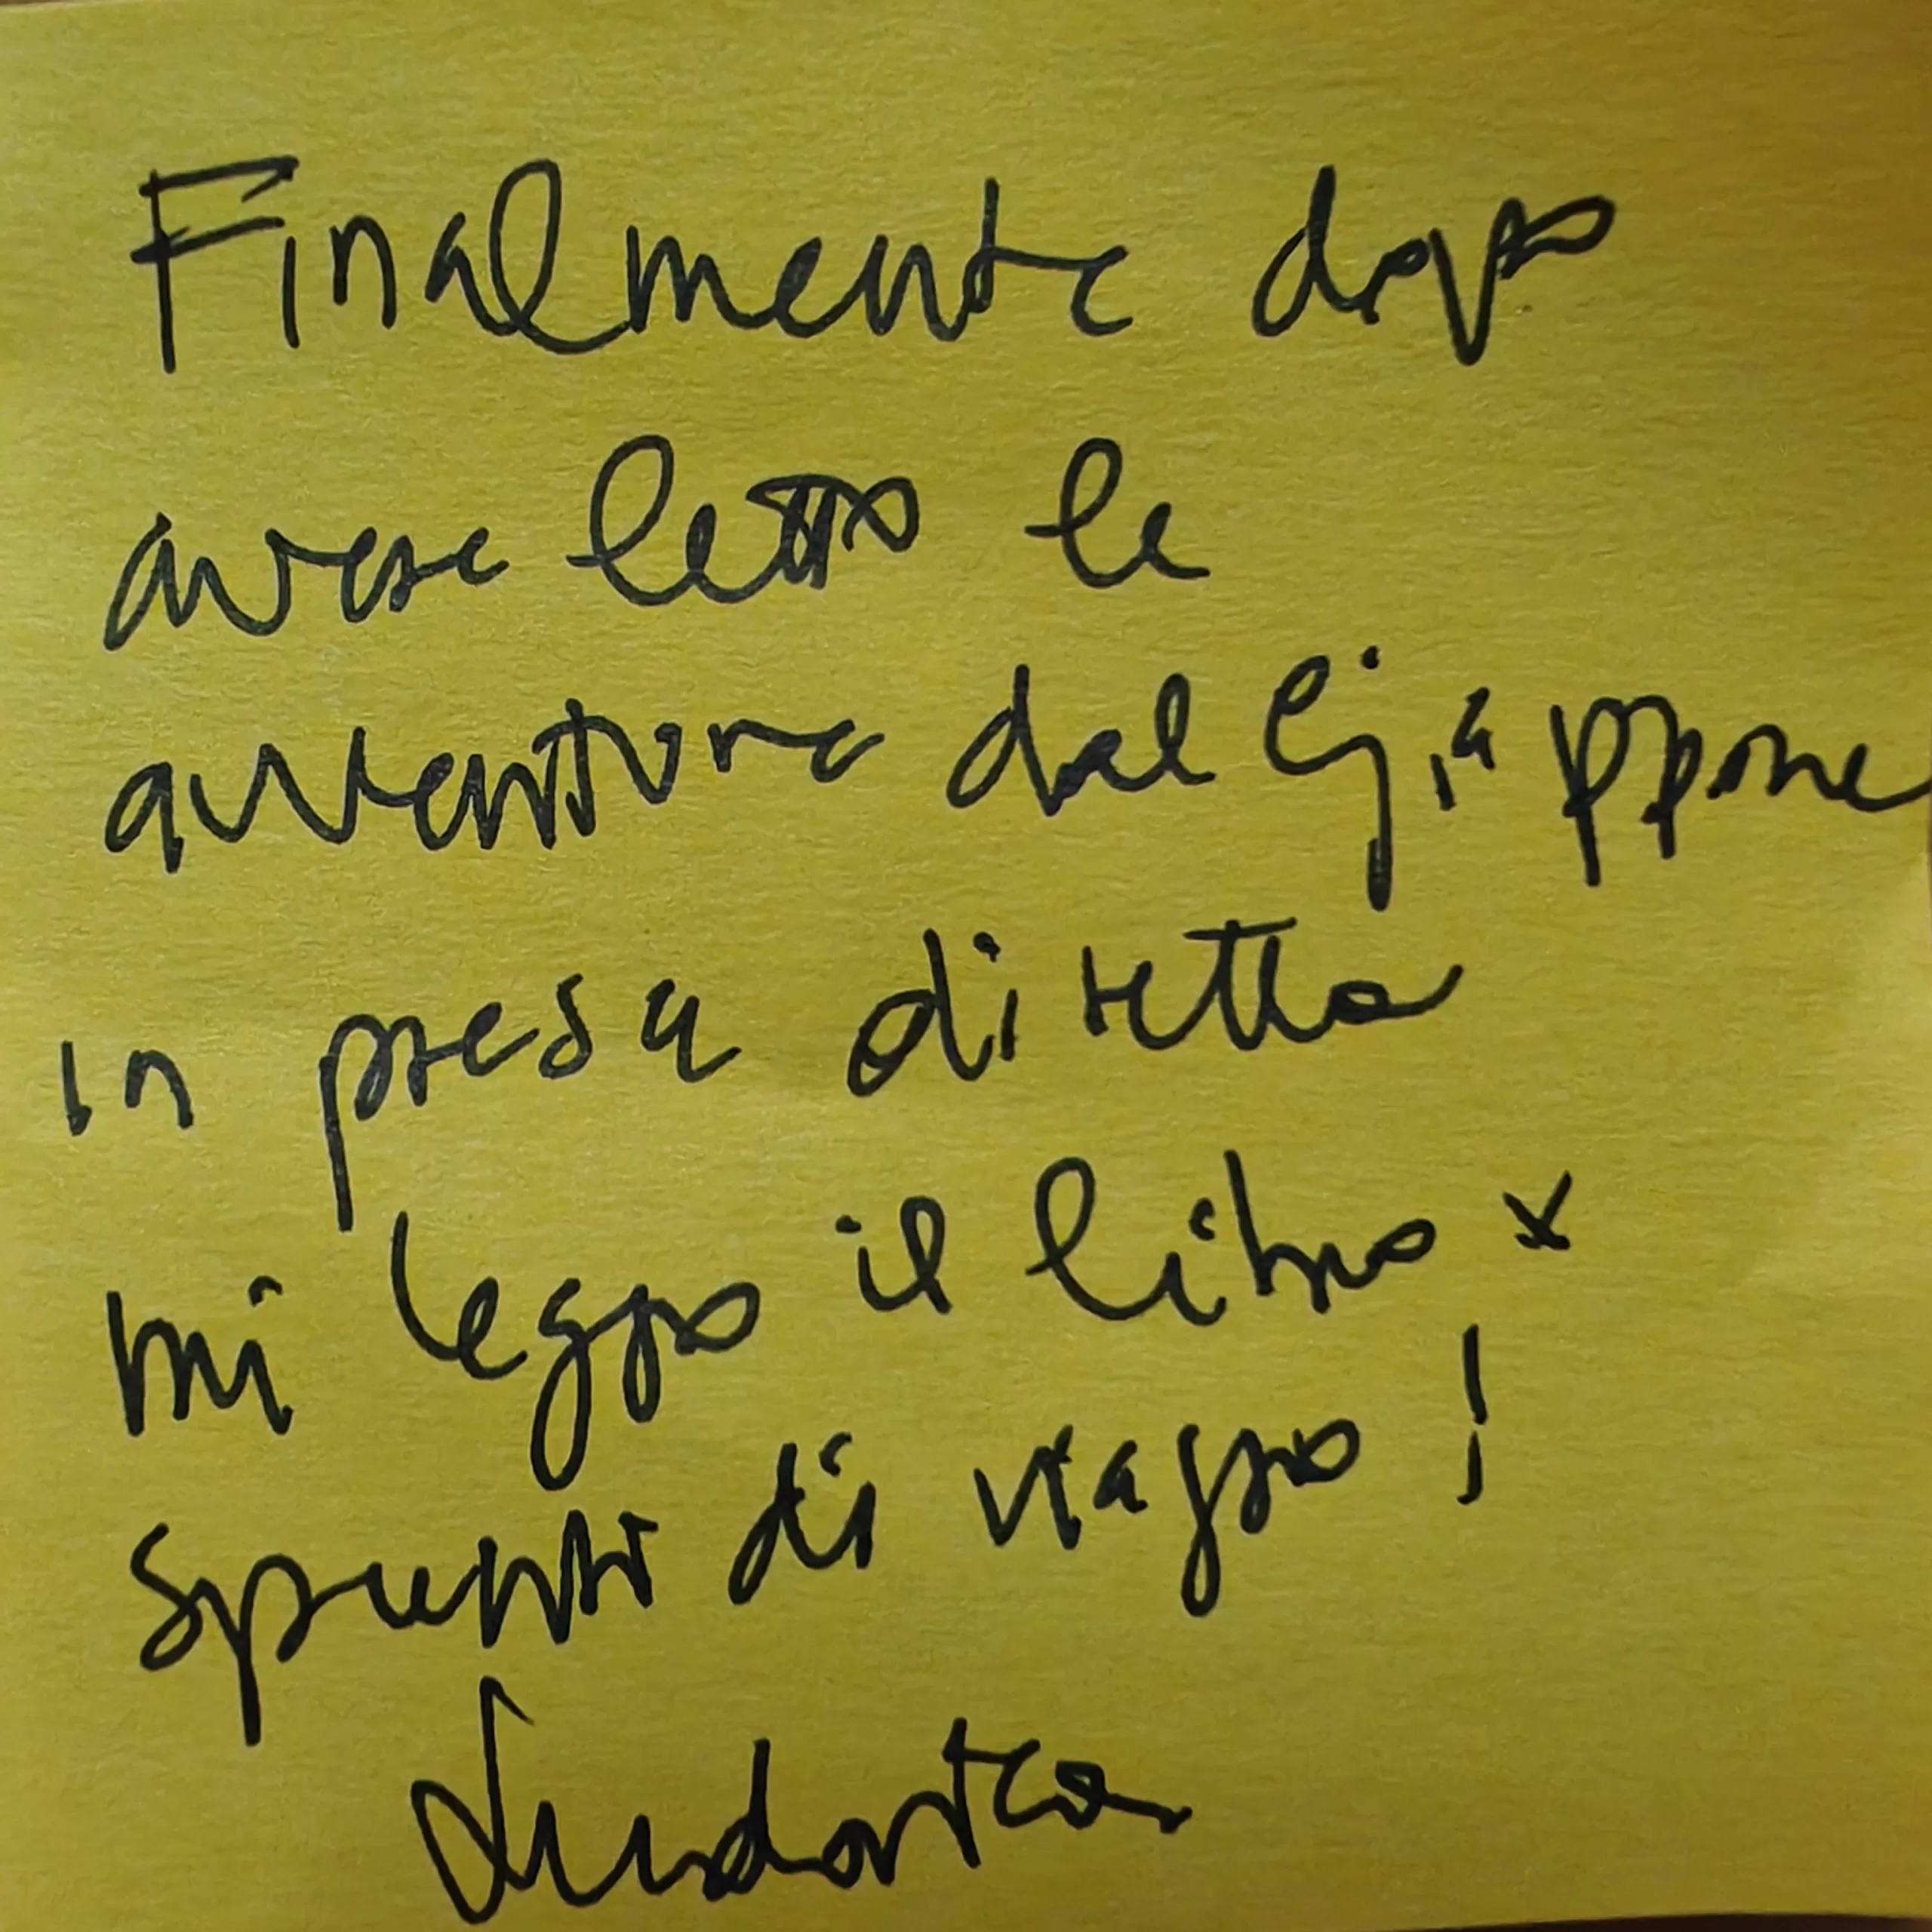 Finalmente dopo
avere letto le
avventure dal Giappone
in presa diretta
mi leggo il libro x
spunti di viaggio!
Ludovica